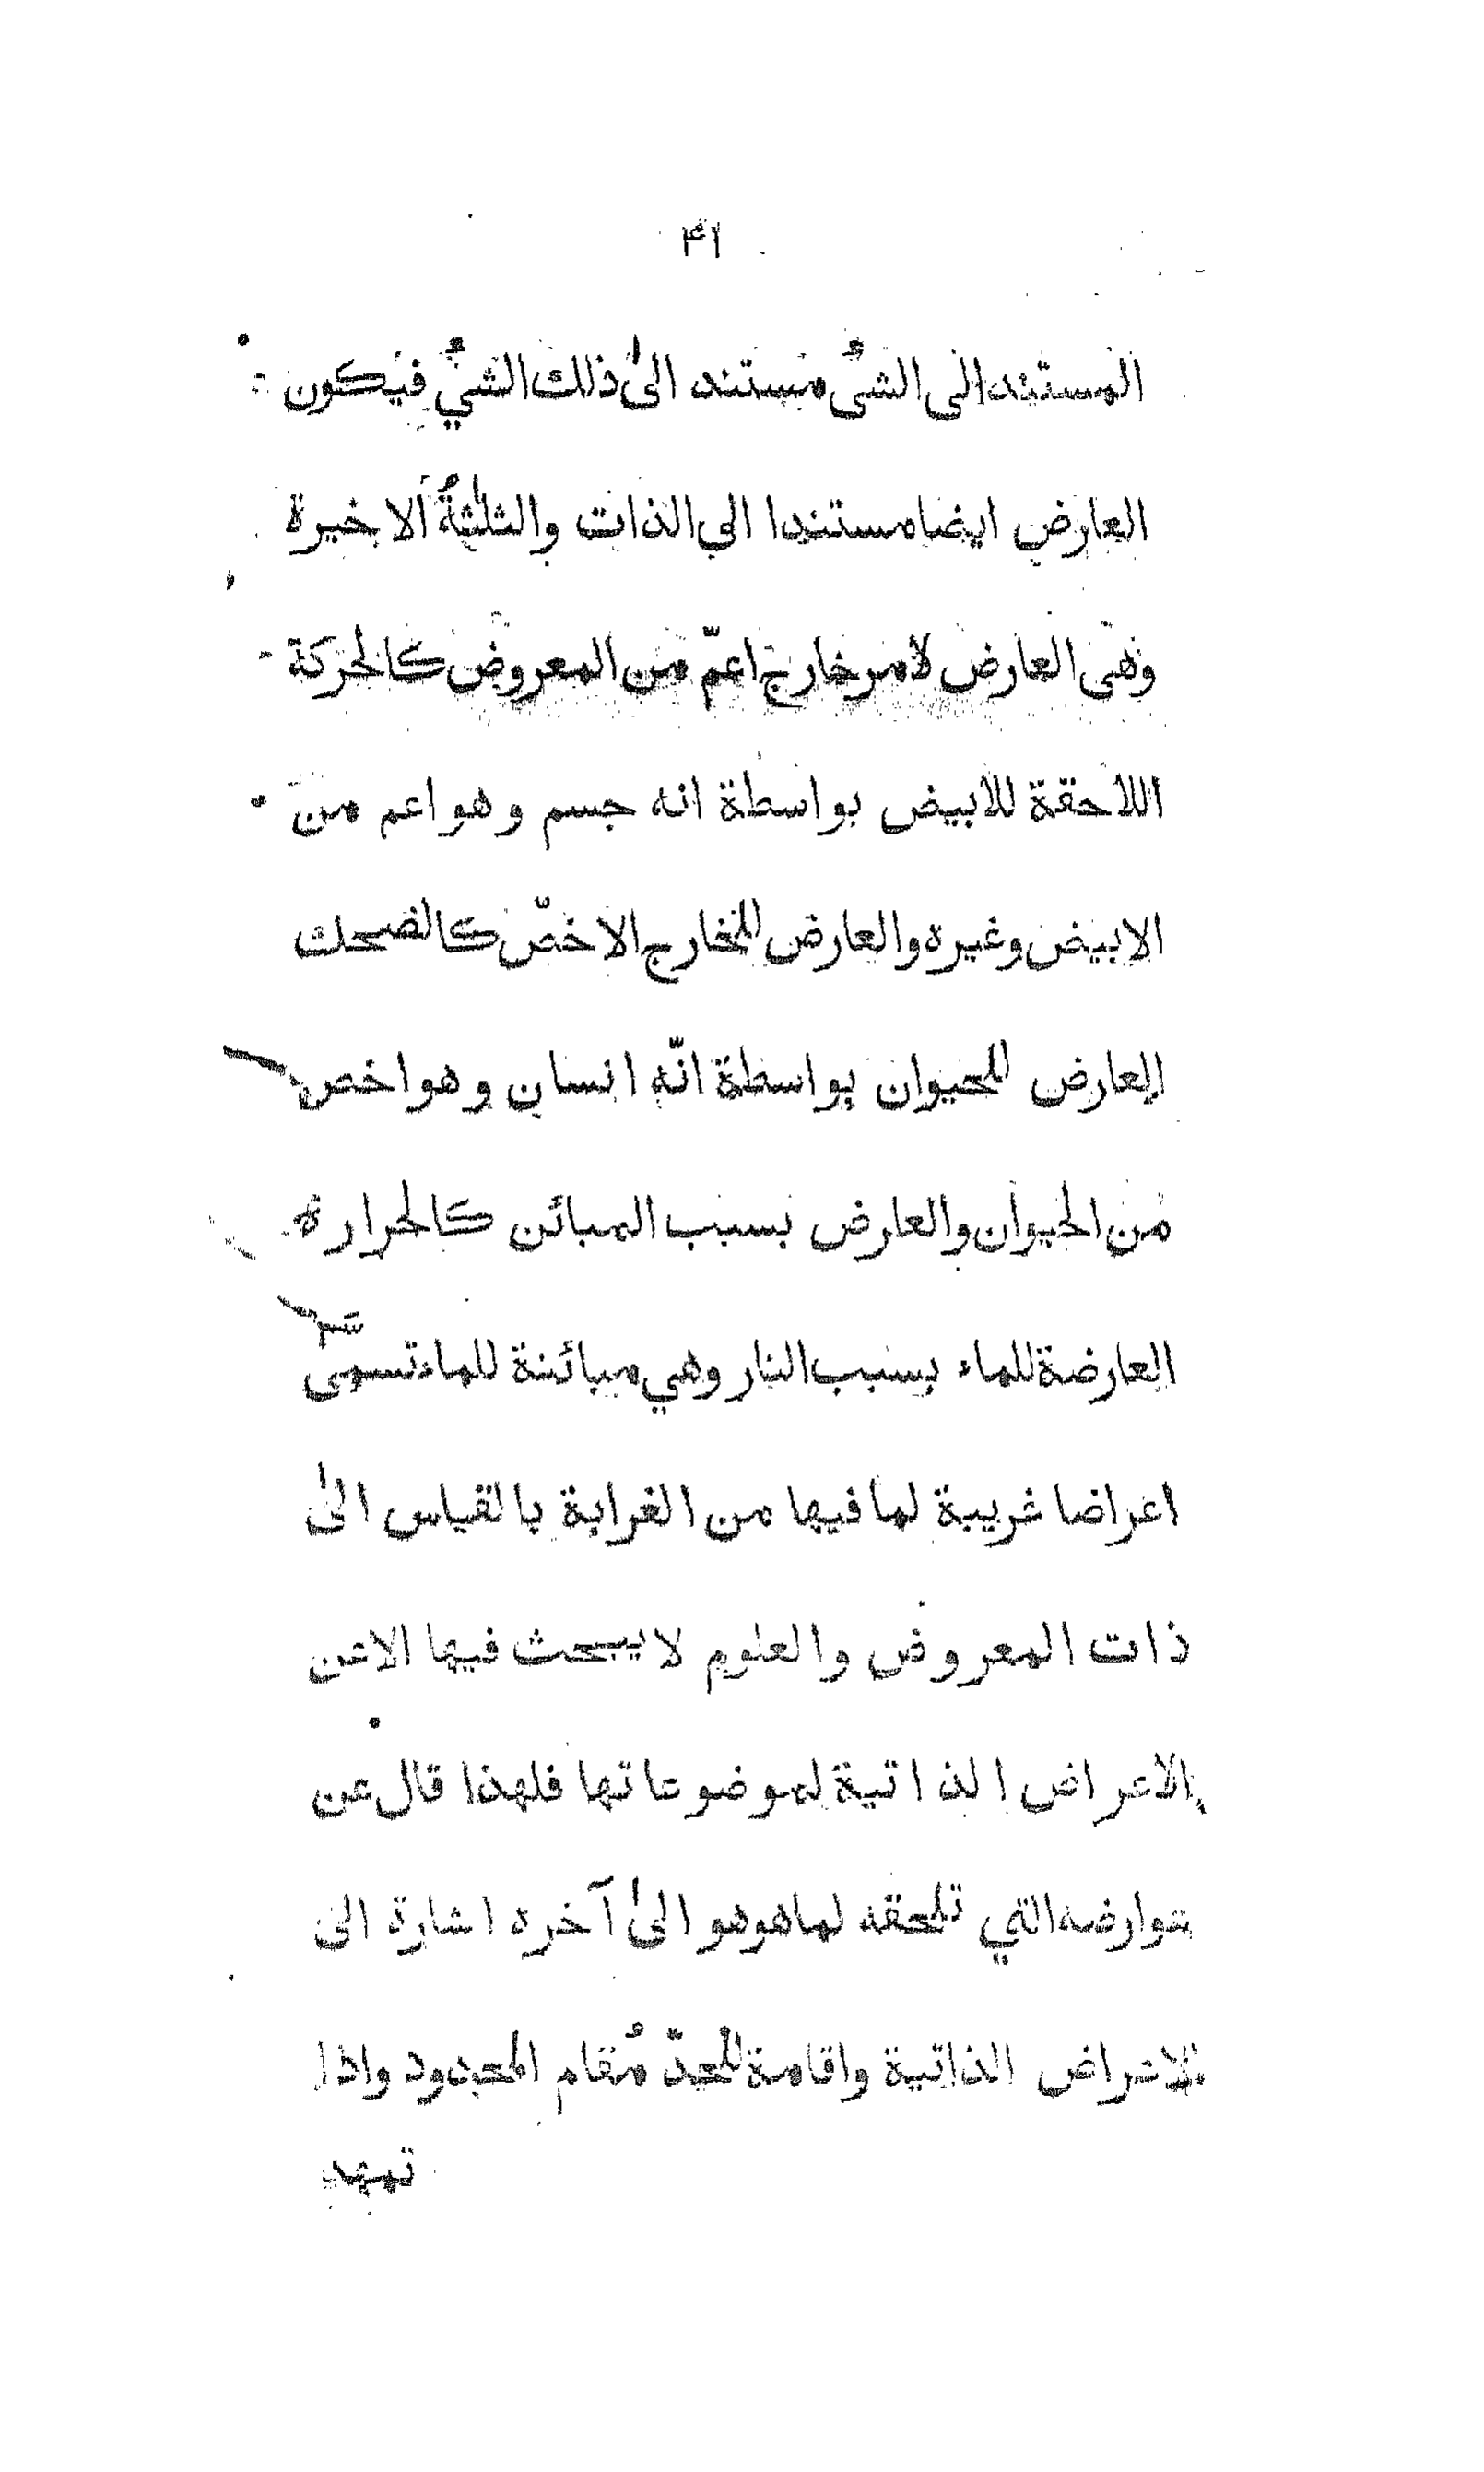 ۴۱
المستند الى الشئ مستند الىٰ ذلك الشيُ فيكون
العارض ايضا مستندا الي الذات والثلٰثةُ الاخيرة
وهى العارض لامر خارج اعمّ من المعروض كالحركة
اللاحقة للابيض بواسطة انه جسم وهو اعم من
الابيض وغيره والعارض للخارج الاخصّ كالضحك
العارض للحيوان بواسطة انّه انسان وهو اخص
من الحيوان والعارض بسبب المبائن كالحرارة
العارضة للماء بسبب النار وهي مبائنة للماء تسمىّ
اعراضا غريبة لما فيها من الغرابة بالقياس الىٰ
ذات المعروض والعلوم لا يبحث فيها الا عن
الاعراض الذاتية لموضوعاتها فلهذا قال عن
عوارضه التي تلحقه لما هو هو الىٰ آخره اشارة الى
الاعراض الذاتية واقامة للحدّ مُقام المحدود واذا
تمهد